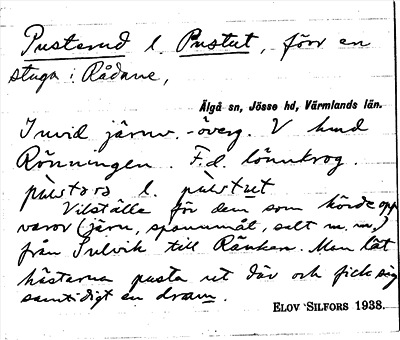 Pusterud l. Pustut, förr en
stuga i Rådane,
Älgå sn, Jösse hd, Värmlands län.
Invid järnv.-överg. V hmd
Rönningen. F.d. lönnkrog.
l.
Vilställe för dem som körde opp
varor (järn, spannmål, salt m.m.)
från Sulvik till Ränken. Man lät
hästarna pusta ut där och fick sig
samtidigt en dram.
ELOV SILFORS 1938.